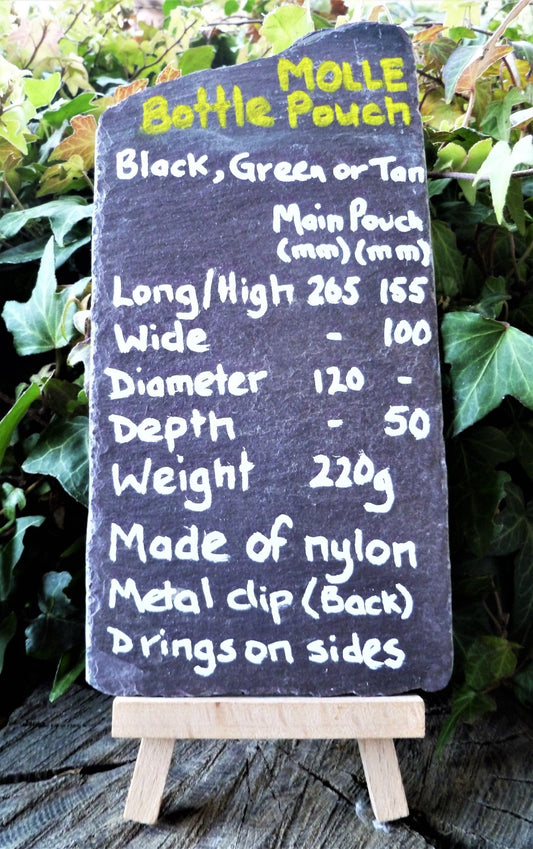 MOLLE
Bottle Pouch
Black, Green or Tan
Main Pouch
(mm) (mm)
Long/High 265 155
Wide - 100
Diameter 120 -
Depth - 50
Weight 220g
Made of nylon
Metal clip (Back)
D rings on sides